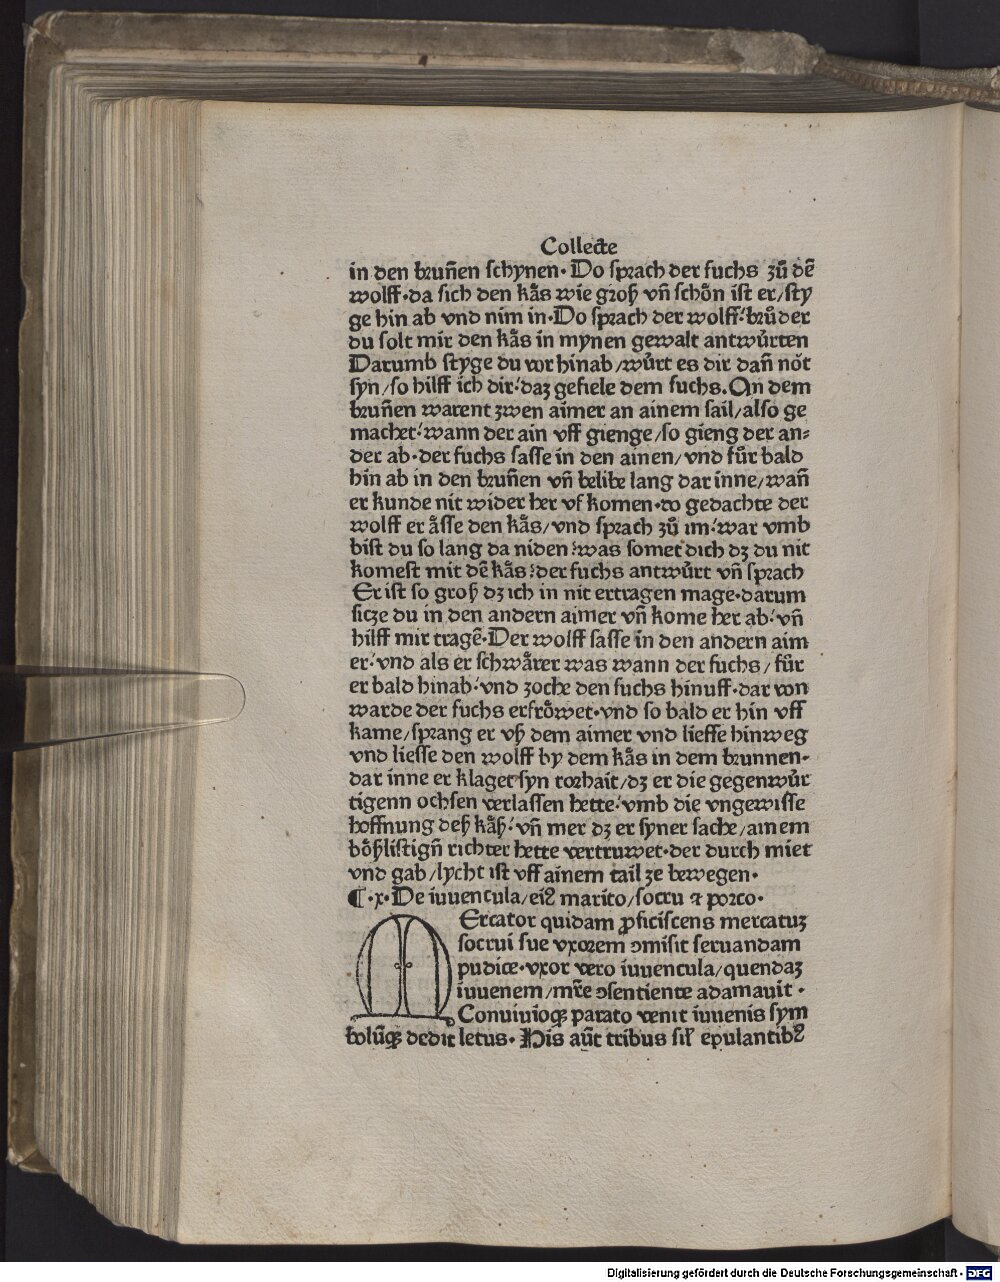 Collecte
in den bruñen schynen· Do sprach der fuchs zů dē
wolff·da sich den kås wie groß vñ schön ist er/sty
ge hin ab vnd nim in·Do sprach der wolff:brůder
du solt mir den kås in mynen gewalt antwůrten
Darumb styge du vor hinab/wůrt es dir dañ nöt
syn/so hilff ich dir:daz gefiele dem fuchs. An dem
bruñen warent zwen aimer an ainem sail/also ge
machet:wann der ain vff gienge/so gieng der an⸗
der ab·der fuchs sasse in den ainen/vnd fůr bald
hin ab in den bruñen vñ belibe lang dar inne/wañ
er kunde nit wider her vf komen·do gedachte der
wolff er åsse den kås/vnd sprach zů im:war vmb
bist du so lang da niden:was somet dich dz du nit
komest mit dē kås:der fuchs antwůrt vñ sprach
Er ist so groß dz ich in nit ertragen mage·darum
sicze du in den andern aimer vñ kome her ab:vñ
hilff mir tragē·Der wolff sasse in den andern aim
er:vnd als er schwårer was wann der fuchs/fůr
er bald hinab:vnd zoche den fuchs hinuff·dar von
warde der fuchs erfröwet·vnd so bald er hin vff
kame/sprang er vß dem aimer vnd lieffe hinweg
vnd liesse den wolff by dem kås in dem brunnen·
dar inne er klaget syn torhait/dz er die gegenwůr
tigenn ochsen verlassen hette:vmb die vngewisse
hoffnung deß kåß:vñ mer dz er syner sache/ainem
bößlistigñ richter hette vertruwet·der durch miet
vnd gab/lycht ist vff ainem tail ze bewegen·
¶·x·De iuuencula/eiꝰ marito/socru ⁊ porco·
MErcator quidam ꝓficiscens mercatuʒ
socrui sue vxorem ↄmisit seruandam
pudice·vxor vero iuuencula/quendaʒ
iuuenem/mr̄e ↄsentiente adamauit·
Conuiuioqꝫ parato venit iuuenis sym
bolūqꝫ dedit letus· His aūt tribus sil̕ epulantibꝰ
Digitalisierung gefördert durch die Deutsche Forschungsgemeinschaft - DFG